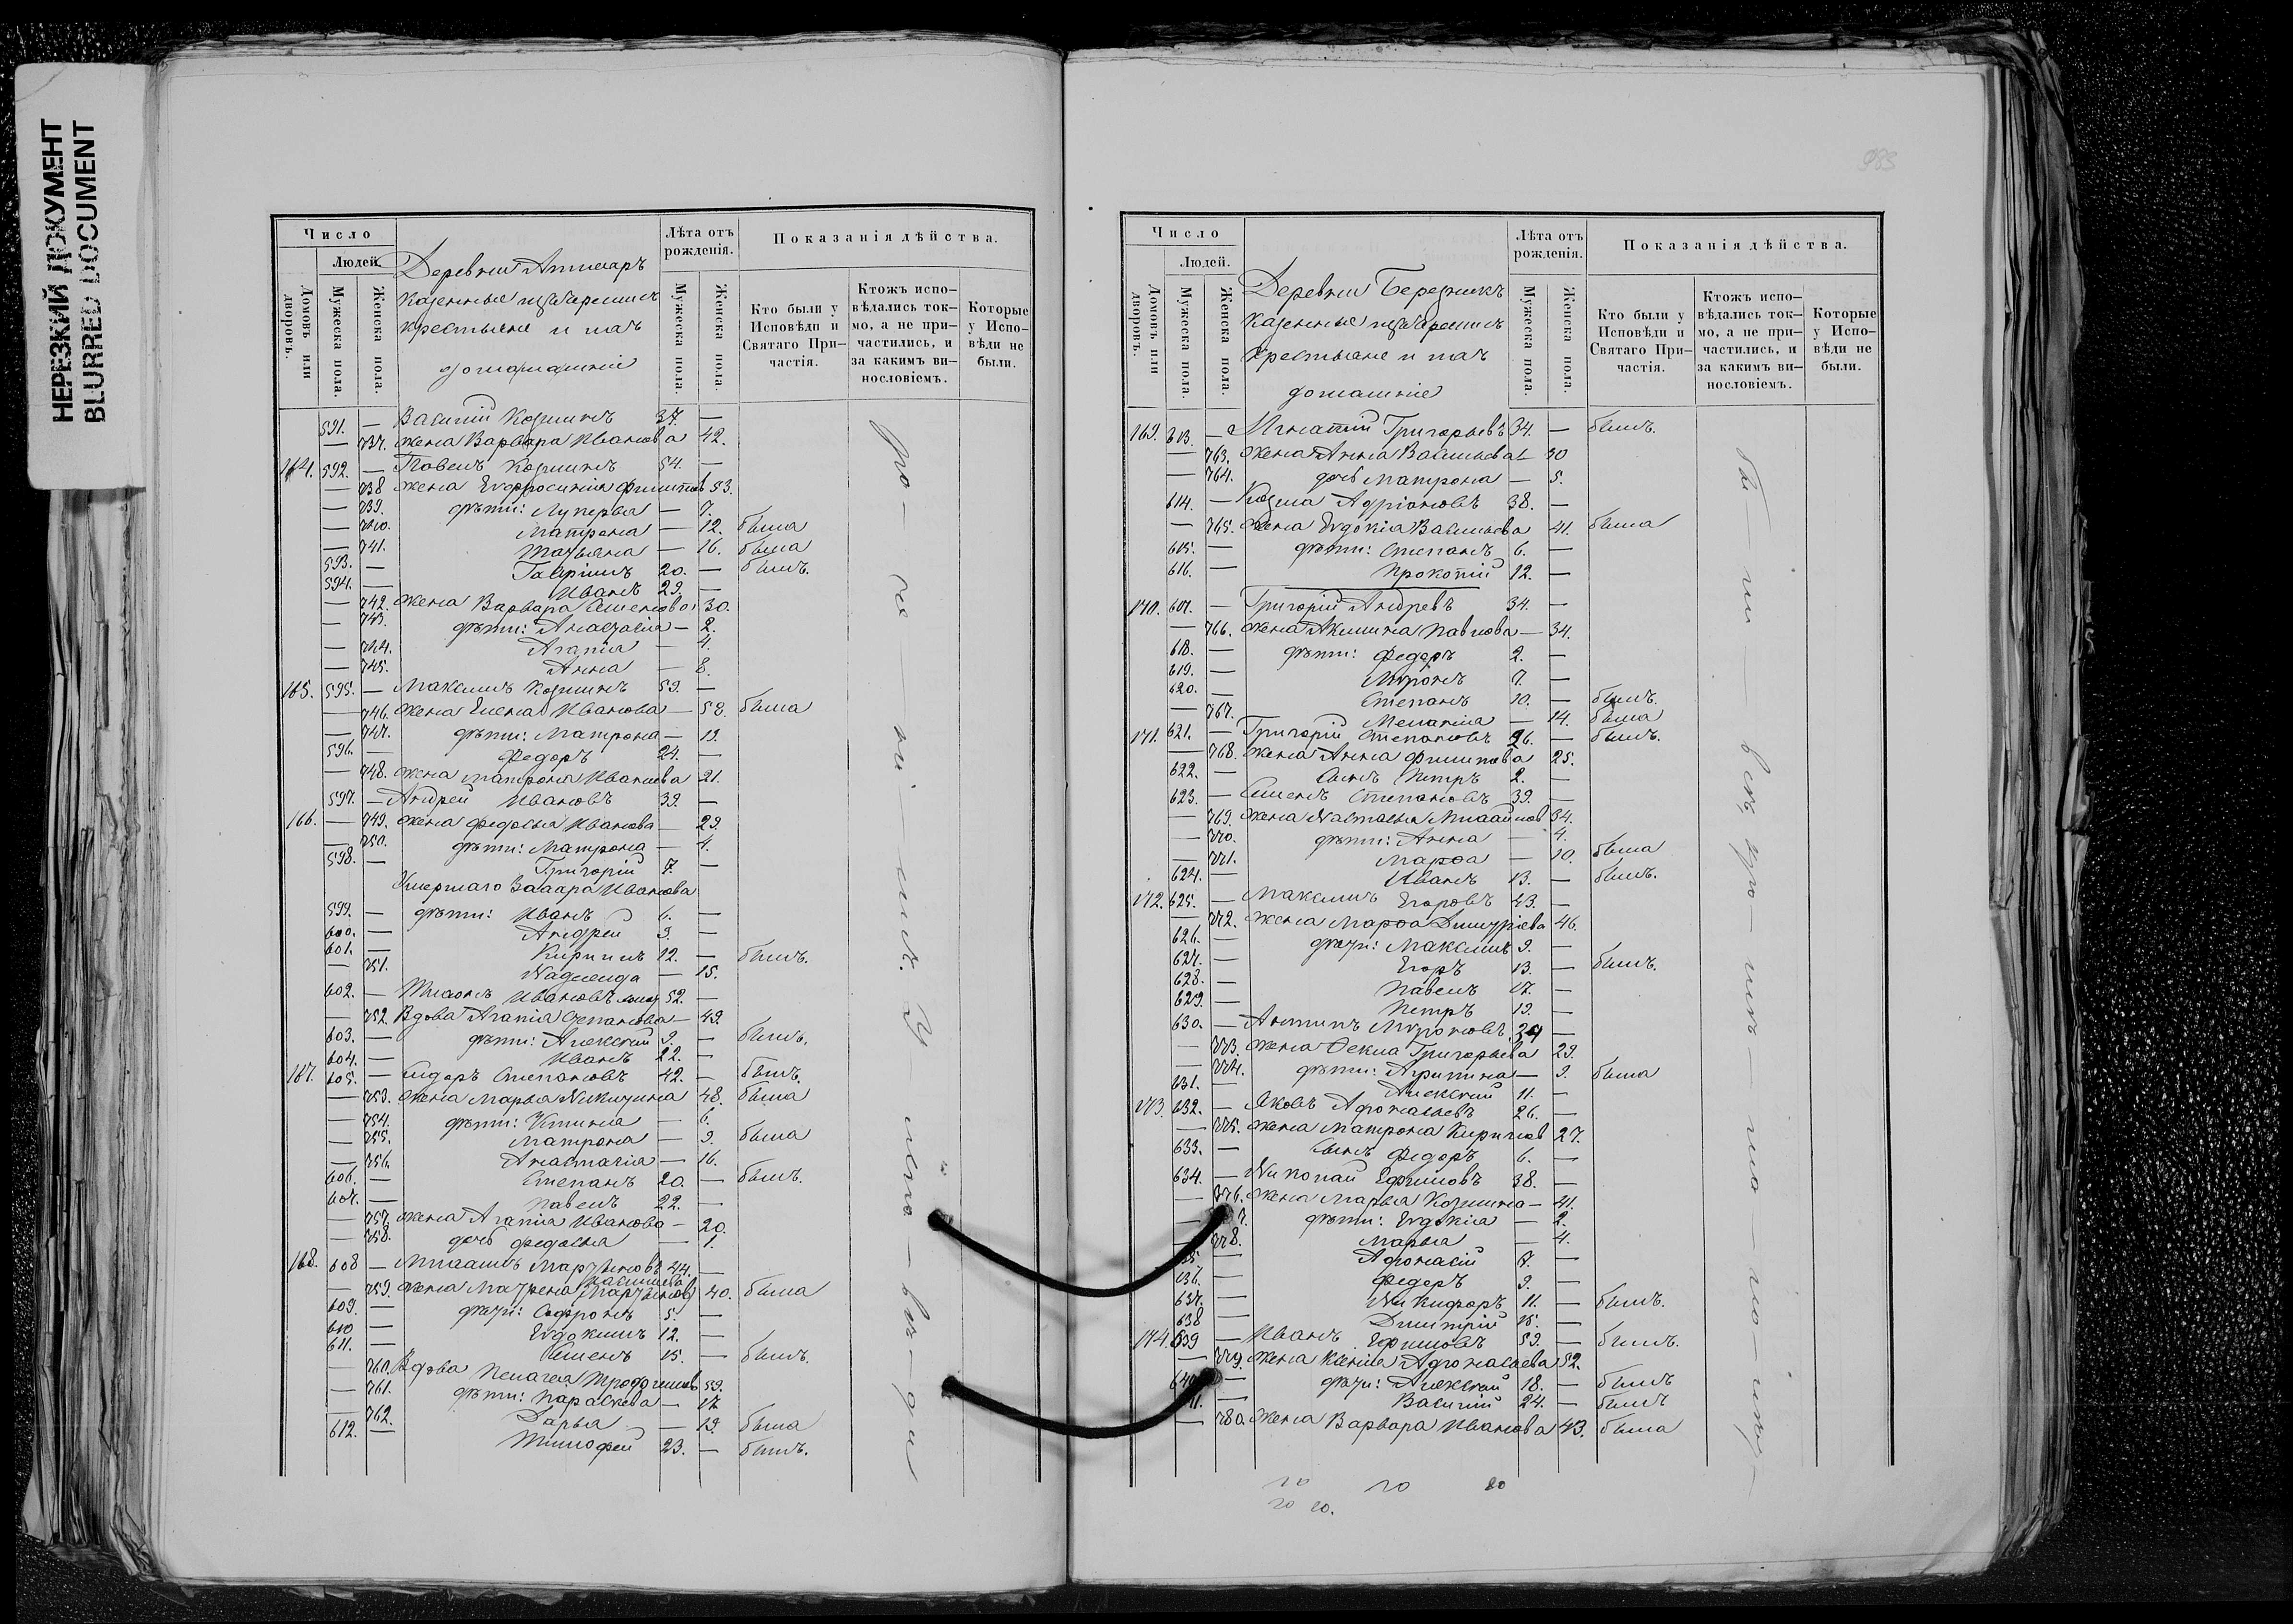 НЕРЕЗКИЙ ДОКУМЕНТ
BLURRED DOCUMENT
Число
Людей.
Домовъ или дворовъ.
Мужеска пола.
Женска пола.
Деревни
казенные
крестьяне и ихъ
домашніе
Лѣта отъ рожденія.
Мужеска пола.
Женска пола.
Показанія дѣйства.
Кто были у Исповѣди и Святаго При-частія.
Ктожъ испо-вѣдались ток-мо, а не при-частились, и за какимъ ви-нословіемъ.
Которые у Испо-вѣди не были.
591. — Василій Козминъ 37. —
— 737. жена Варвара Иванова 42.
164. 592. — Павелъ Козминъ 54. —
— 738 жена Евфросинія Филипов 53.
— 739. дѣти: Лукерья — 7.
— 740. Матрона — 12. была
— 741. Татьяна — 16. была
593. — Гавріилъ 20. — былъ.
594. — Иванъ 29. —
— 742. жена Варвара Семенова 30.
— 743. дѣти: Анастасіа — 2.
— 744. Агапіа — 4.
— 745. Анна — 8.
165. 595. — Максимъ Козминъ 59. —
— 746. жена Елена Иванова — 58. была
— 747. дѣти: Матрона — 19.
596. — Федоръ 24. —
— 748. жена Матрона Иванова 21.
597. — Андрей Ивановъ 39. —
166. — 749. жена Федосья Иванова — 29.
— 750. дѣти: Матрона — 4.
598. — Григорій 7. —
Умершаго Захара Иванова
599. — дѣти: Иванъ 6. —
600. — Андрей 9. —
601. — Кирилъ 12. — былъ.
— 751. Надежда — 15.
602. — Ивановъ 52. —
— 752. Вдова Агапіа Степанова — 49.
603. — дѣти: Алексѣй 9. — былъ.
604. — Иванъ 22. —
167. 605. — Сидоръ Степановъ 42. — былъ.
— 753. жена Марья Никитина 48. была
— 754. дѣти: Устинья — 6.
— 755. Матрона — 9. была
— 756. Анастасіа — 16.
606. — Степанъ 20. — былъ.
607. — Павелъ 22. —
— 757. жена Агапіа Иванова — 20.
— 758. дочь Федосья — 1.
168. 608 — Михаилъ Мартыновъ 44. —
— 759. жена 40. была
609. — дѣти: Софронъ 5. —
610 — Евдокимъ 12. —
611. — Семенъ 15. — былъ.
— 760. Вдова Пелагея Трофимов 59.
— 761. дѣти: Параскева — 17
— 762. Дарья — 19. была
612. — Тимофей 23. — былъ.
983
Число
Людей.
Домовъ или дворовъ.
Мужеска пола.
Женска пола.
Деревни Березникъ
казенные
крестьяне и ихъ
домашніе
Лѣта отъ рожденія.
Мужеска пола.
Женска пола.
Показанія дѣйства.
Кто были у Исповѣди и Святаго При-частія.
Ктожъ испо-вѣдались ток-мо, а не при-частились, и за какимъ ви-нословіемъ.
Которые у Испо-вѣди не были.
169. 613. — Игнатій Григорьевъ 34. — былъ.
— 763. жена Анна Васильева — 30
— 764. дочь Матрона — 5.
614. — Козма Адріановъ 38. —
— 765. жена Евдокіа Васильева 41. была
615. — дѣти: Степанъ 6. —
616. — Прокопій 12. —
170. 617. — Григорій Андреевъ 34. —
— 766. жена Акилина Павлова — 34.
618. — дѣти: Федоръ 2. —
619. — Миронъ 7. —
620. — Степанъ 10. — былъ.
— 767. Меланіа — 14. была
171. 621. — Григорій Степановъ 26. — былъ.
— 768. жена Анна Филипова 25.
622. — Сынъ Петръ 2. —
623. — Семенъ Степановъ 39. —
— 769. жена Настасья Михайлов 34.
— 770. дѣти: Анна — 4.
— 771. Марѳа — 10. была
624. — Иванъ 13. — былъ.
172. 625. — Максимъ Егоровъ 43. —
— 772. жена Марѳа Димитріева 46.
626. — дѣти: Максимъ 9. —
627. — Егоръ 13. — былъ.
628. — Павелъ 17. —
629. — Петръ 19. —
630. — Антипъ Мироновъ 29 —
— 773. жена Ѳекла Григорьева 29.
— 774. дѣти: Агрипина — 9. была
631. — Алексѣй 11. —
173. 632. — Яковъ Афонасьевъ 26. —
— 775. жена Матрона Кирилов 27.
633. — Сынъ Федоръ 6. —
634. — Николай Ефимовъ 38. —
— 776. жена Марья Козмина — 41.
7. дѣти: Евдокіа — 2.
778. Марья — 4.
35. — Афонасій 7. —
636. — Федоръ 9. —
637. — Никифоръ 11. — былъ.
638 — Димитрій 15. —
174. 639 — Иванъ Ефимовъ 59. — былъ.
— 779. жена Ксенія Афонасьева 52.
640 — дѣти: Алексѣй 18. — былъ
41. — Василій 24. — былъ
— 780. жена Варвара Иванова 43. была